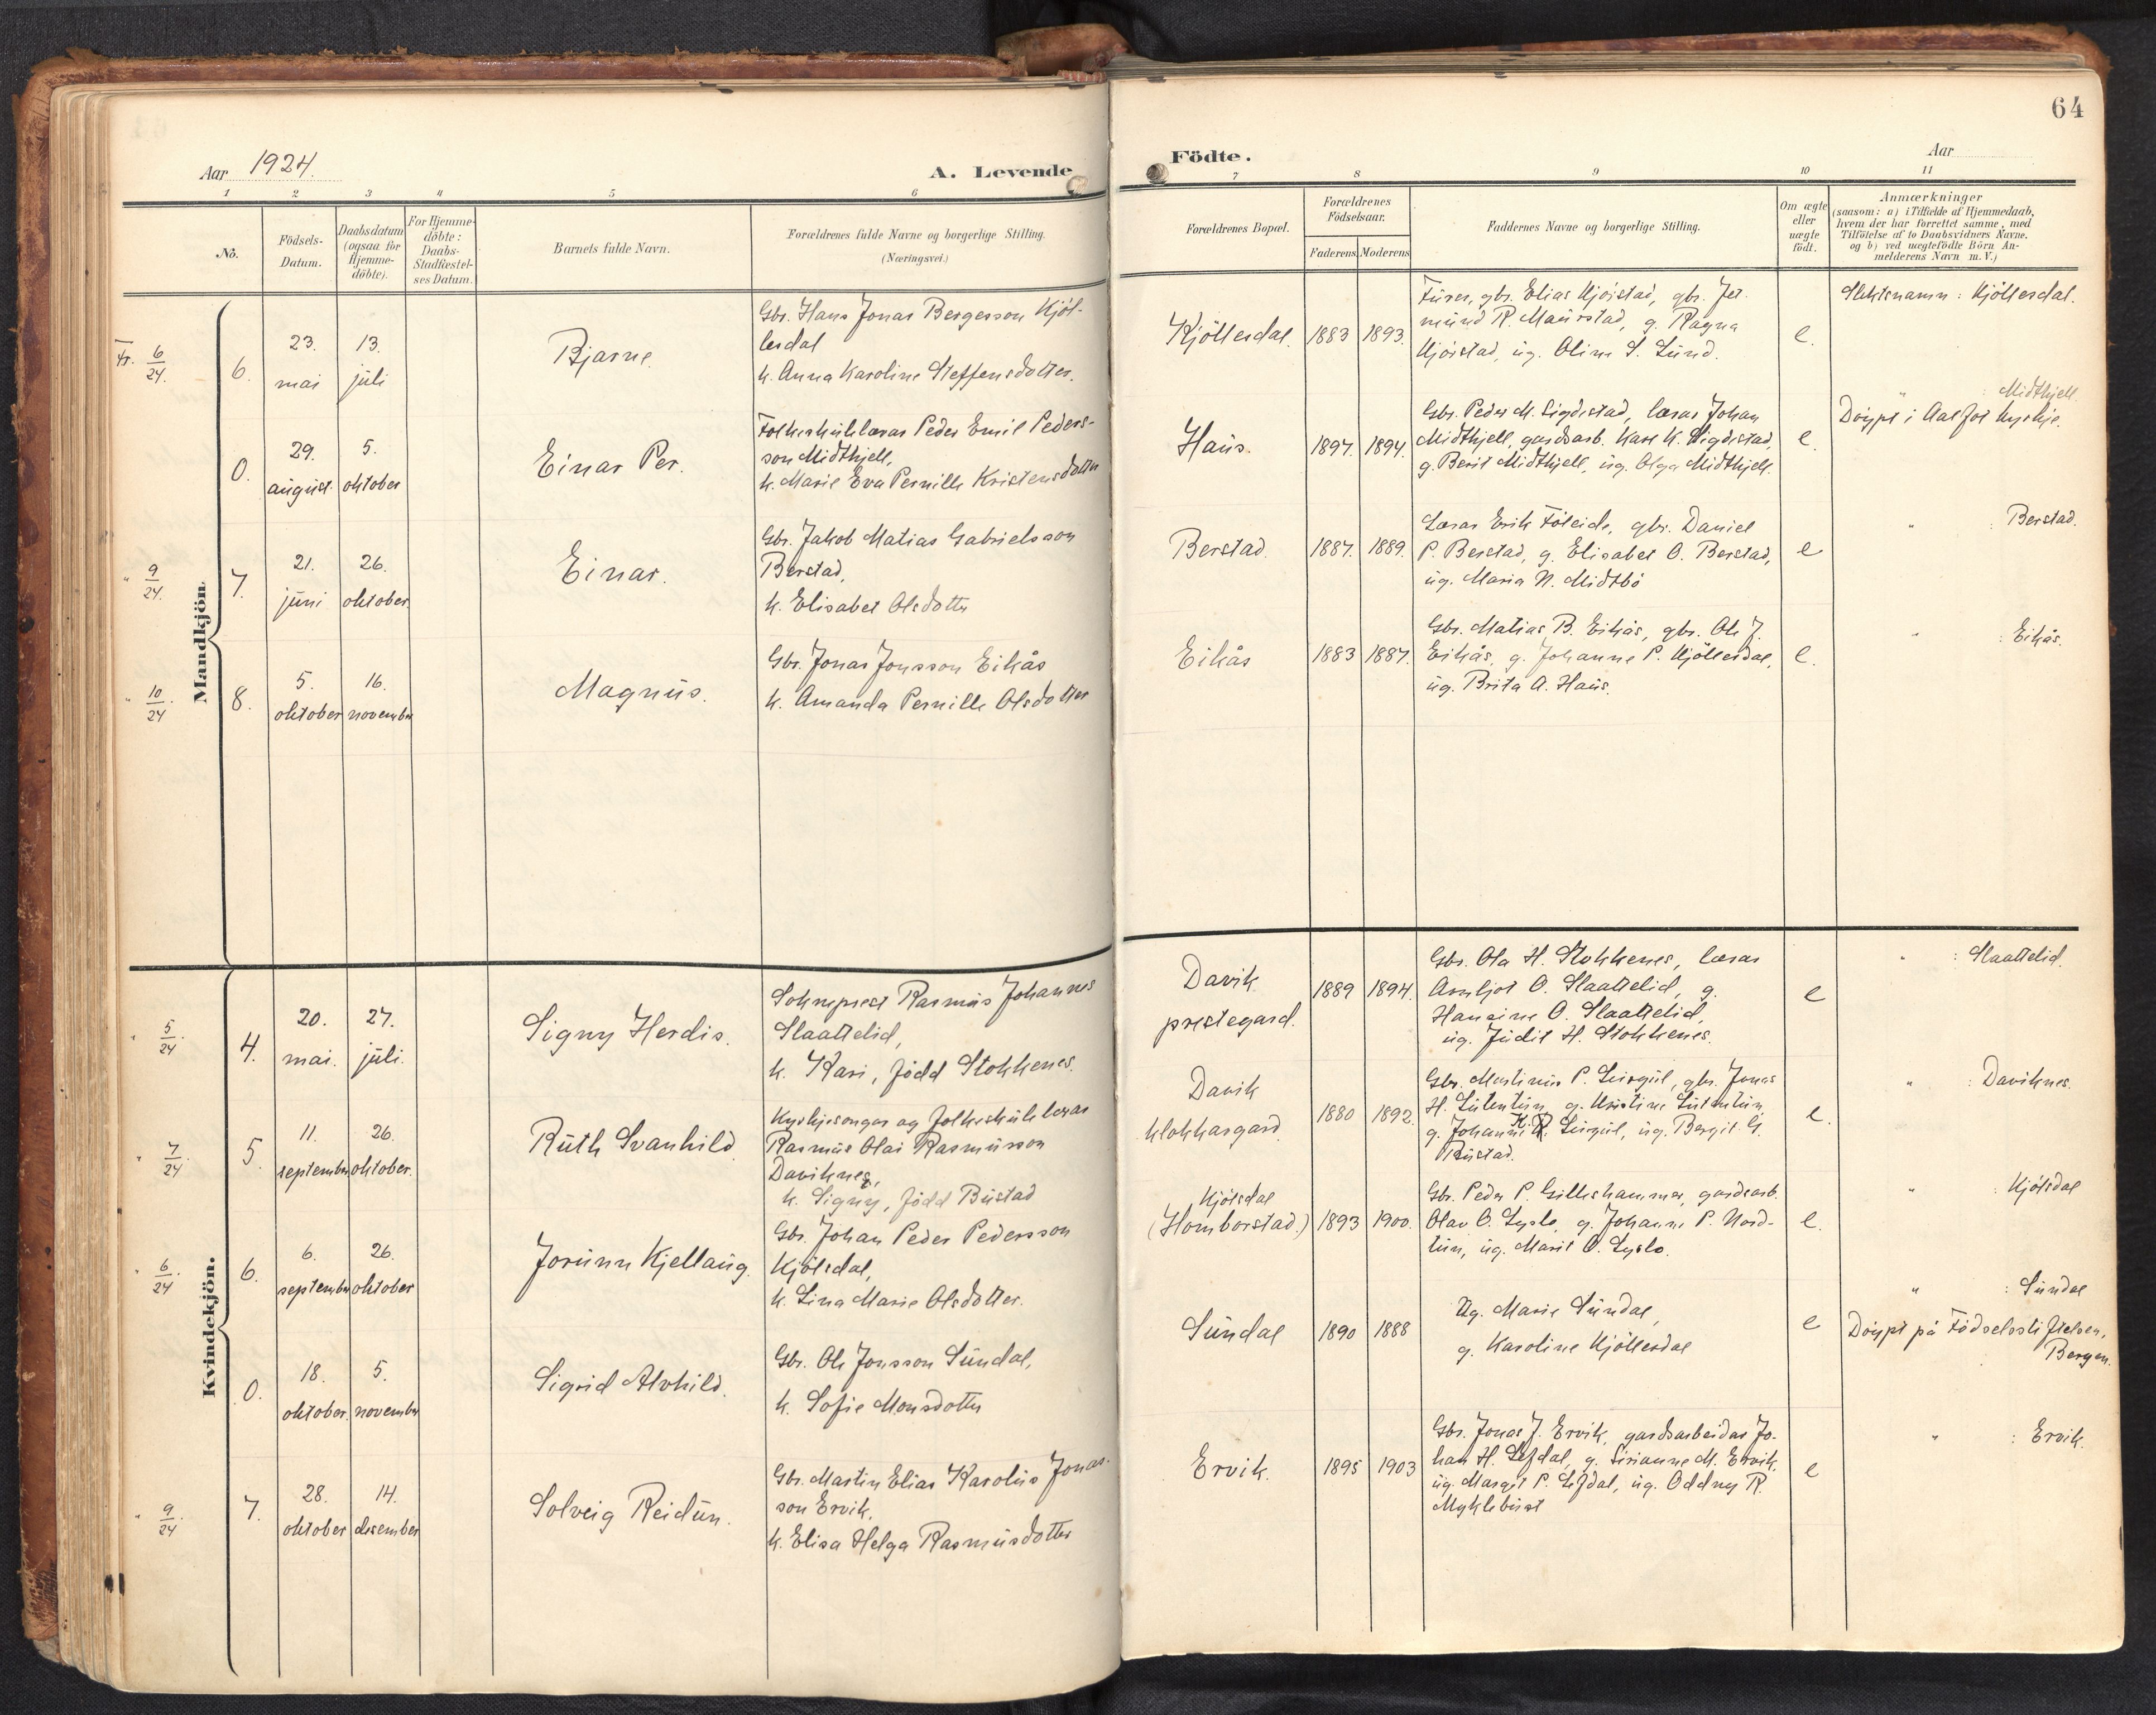 64
Aar 1924.
A. Levende
Födte.
Aar
1 2 3 4 5 6
7 8 9 10 11
No.
Födsels-
Datum.
Daabsdatum
(ogsaa for
Hjemme-
döbte).
For Hjemme-
döbte:
Daabs-
Stadfæstel-
ses Datum.
Barnets fulde Navn.
Forældrenes fulde Navne og borgerlige Stilling.
(Næringsvei.)
Forældrenes Bopæl.
Forældrenes
Födselsaar.
Faderens Moderens
Faddernes Navne og borgerlige Stilling.
Om ægte
eller
uægte
födt.
Anmærkninger
(saasom: a) i Tilfælde af Hjemmedaab,
hvem der har forrettet samme, med
Tilföielse af to Daabsvidners Navne,
og b) ved uægtefödte Börn An-
melderens Navn m. V.)
Mandkjön.
Fr. 6/24.
6.
23.
mai
13.
juli
Bjarne.
Gbr. Hans Jonas Bergesson Kjöl-
lesdal
k. Anna Karoline Steffensdotter.
Kjöllesdal.
1883
1893.
Furer, gbr. Elias Kjöistad, gbr. Jet-
mund R. Maurstad, g. Ragna
Kjöistad, ug. Oline S. Lund.
e.
Slektsnamn: Kjöllesdal.
0.
29.
august.
5.
oktober
Einar Per.
Folkeskulelærar Peder Emil Peders-
son Midthjell,
k. Marie Eva Pernille Kristensdotter
Haus.
1897.
1894.
Gbr. Peder M. Sigdestad, lærar Johan
Midthjell, gardsarb. Karl K. Sigdestad,
g. Berit Midthjell, ug. Olga Midthjell.
e.
" : Midthjell.
Döypt i Aalfot kyrkje.
" 9/24.
7.
21.
juni
26.
oktober.
Einar.
Gbr. Jakob Matias Gabrielsson
Berstad,
k. Elisabet Olsdotter
Berstad.
1887.
1889.
Lærar Erik Föleide, gbr. Daniel
P. Berstad, g. Elisabet O. Berstad,
ug. Maria N. Midtbö
e
" : Berstad.
" 10/24
8.
5.
oktober
16.
november
Magnus.
Gbr. Jonas Jonsson Eikås
k. Amanda Pernille Olsdotter
Eikås
1883
1887.
Gbr. Matias B. Eikås, gbr. Ole J.
Eikås, g. Johanne P. Kjöllesdal,
ug. Brita A. Haus.
e.
" : Eikås.
Kvindekjön.
" 5/24.
4.
20.
mai.
27.
juli.
Signy Herdis.
Sokneprest Rasmus Johannes
Slaattelid,
k. Kari, född Stokkenes.
Davik
prestegard.
1889
1894.
Gbr. Ola H. Stokkenes, lærar
Arnljot O. Slaattelid, g.
Hansine O. Slaattelid,
ug. Judit H. Stokkenes.
e
" : Slaattelid.
" 7/24
5.
11.
september
26.
oktober.
Ruth Svanhild.
Kyrkjesongar og folkeskulelærar
Rasmus Olai Rasmusson
Daviknes,
k. Signy, född Bustad
Davik
klokkargard.
1880
1892.
Gbr. Martinus P. Leirgul, gbr. Jonas
H. Lutentun, g. Kristine Lutentun,
g. Johanne K. Leirgul, ug. Bergit G.
Bustad.
e.
" : Daviknes.
" 6/24.
6.
6.
september
26.
oktober
Jorunn Kjellaug.
Gbr. Johan Peder Pedersson
Kjölsdal,
k. Lina Marie Olsdotter.
Kjölsdal
(Homborstad.)
1893
1900.
Gbr. Peder P. Gilleshammer, gardsarb.
Olav O. Lyslo, g. Johanne P. Nord-
tun, ug. Marit O. Lyslo.
e.
" : Kjölsdal
0.
18.
oktober.
5.
november
Sigrid Alvhild.
Gbr. Ole Jonsson Sundal,
k. Sofie Monsdotter
Sundal
1890
1888
Ug. Marie Sundal,
g. Karoline Kjöllesdal
e
" : Sundal
Döypt på Födselsstiftelsen,
Bergen.
" 9/24
7.
28.
oktober
14.
desember
Solveig Reidun.
Gbr. Martin Elias Karolus Jonas-
son Ervik,
k. Elisa Helga Rasmusdotter
Ervik.
1895
1903
Gbr. Jonas J. Ervik, gardsarbeidar Jo-
han H. Lefdal, g. Sirianne M. Ervik,
ug. Margit P. Lefdal, ug. Oddny R.
Myklebust
e
" : Ervik.